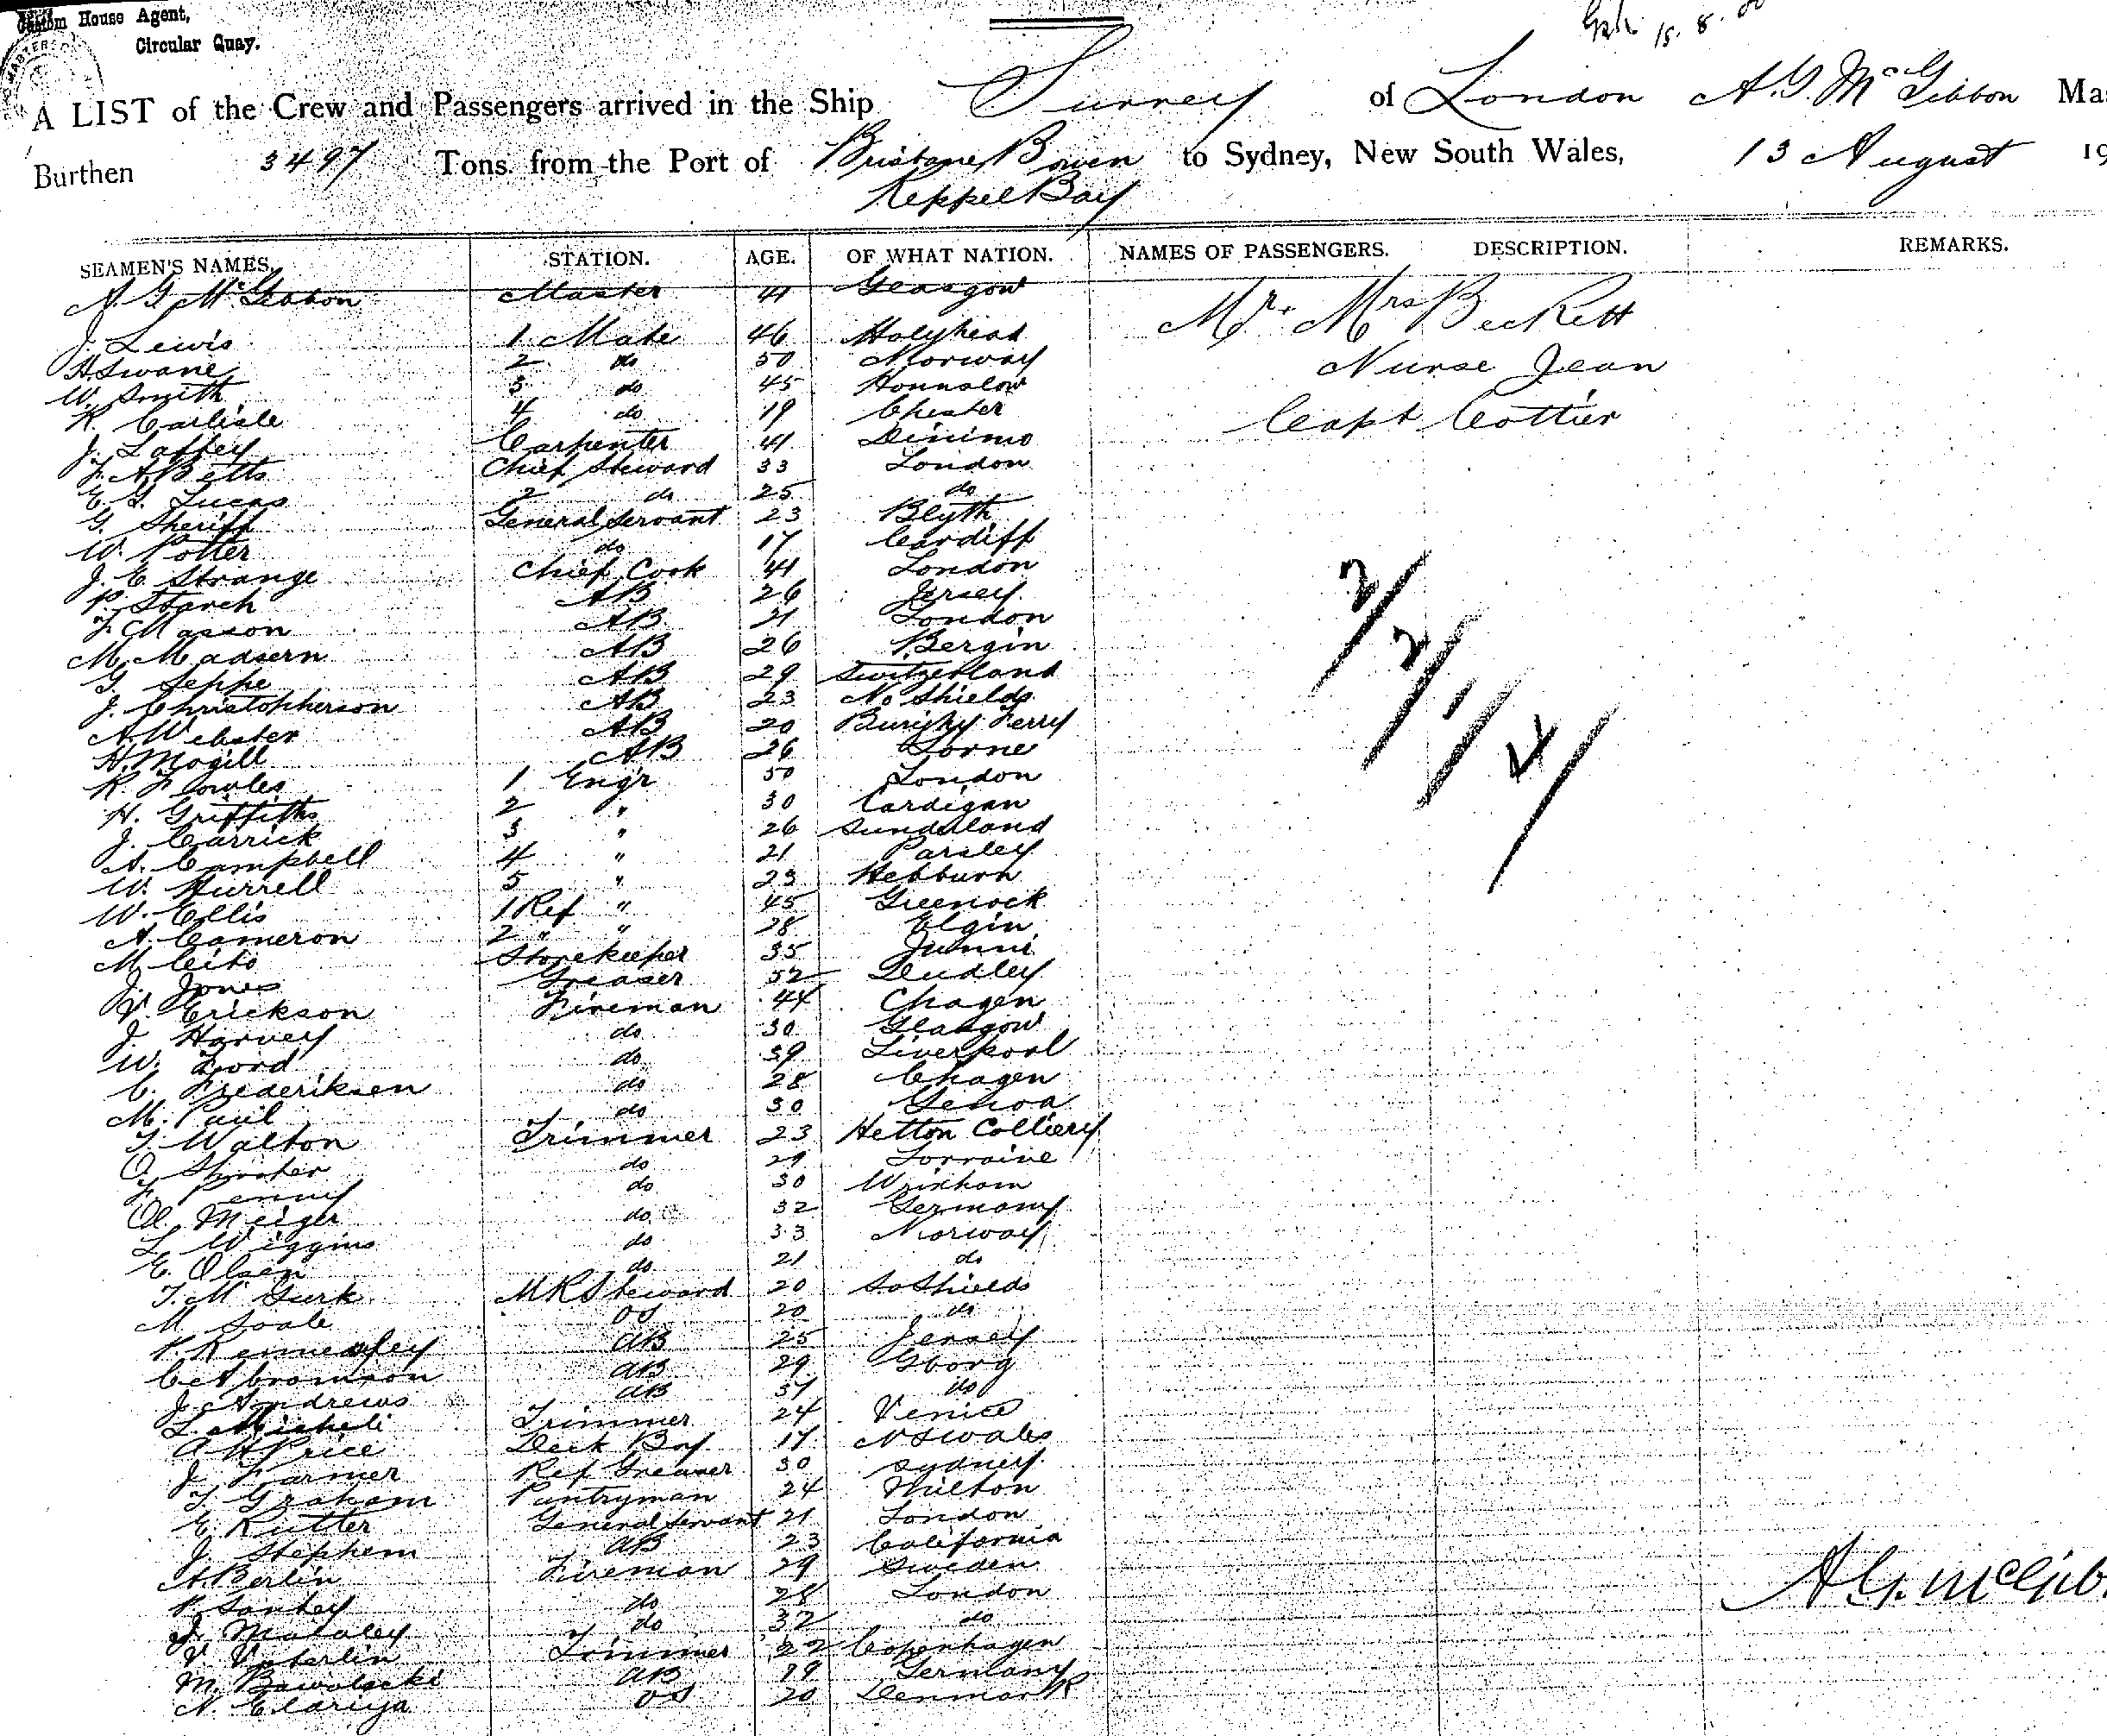 Custom House Agent,
Circular Quay.
15.8.00
A LIST of the Crew and Passengers arrived in the Ship Surrey of London A.G. McGibbon Mas
Burthen 3497 Tons from the Port of Brisbane, Bowen to Sydney, New South Wales, 13 August 19
Keppel Bay
SEAMEN'S NAMES. STATION. AGE. OF WHAT NATION. NAMES OF PASSENGERS. DESCRIPTION. REMARKS.
A. G McGibbon Master 41 Glasgow
Mr. Mrs Beckett
J. Lewis 1 Mate 46 Holyhead
H Swane 2 do 50 Norway
Nurse Jean
W. Smith 3 do 45 Hounslow
R. Carlisle 4 do 19 Chester
Capt Cottier
J. Laffey Carpenter 41 Dinimo
F. A Betts Chief Steward 33 London
E. G. Lucas 2 do 25 do
G. Sheriff General Servant 23 Blyth
W. Potter do 17 Cardiff
J. E Strange Chief Cook 41 London
P. Starck AB 26 Jersey
F. Masson AB 21 London
M. Madsern AB 26 Bergin
G. Seppe AB 29 Switzerland
J. Christopherson AB 23 No Shields
A. Webster AB 20 Ferry
H. Mogill AB 26 Lorne
R. Fowles 1 Engr 50 London
H. Griffiths 2 " 30 Cardigan
J. Carrick 3 " 26 Sunderland
A. Campbell 4 " 21 Parsley
W. Hurrell 5 " 23 Hebburn
W. Ellis 1 Ref " 45 Greenock
A. Cameron 2 " " 28 Elgin
M. Ceito Storekeeper 35
J. Jones Greaser 52 Dudley
V. Erickson Fireman 44 Chagen
J. Harvey do 30 Glasgow
W. Ford do 39 Liverpool
C. Frederiksen do 28 Chagen
M. Paul do 30 Genoa
T. Walton Trimmer 23 Hetton Colliery
O. Shuster do 29 Lorraine
F. Penny do 30 Wrixham
Meiger do 32 Germany
L. Wiggins do 33 Norway
E. Olsen do 21 do
T. M Gurk M R Steward 20 So Shields
M Soale OS 20 do
P. AB 25 Jersey
C. Abramson AB 29 Gborg
J. Andrews AB 51 do
L. Micheli Trimmer 24 Venice
A H Price Deck Boy 17 N S Wales
J Farmer Ref Greaser 30 Sydney
T. Graham Pantryman 24 Milton
E. Rutter General Servant 21 London
J. Stephem AB 23 California
A. Berlin Fireman 29 Sweden
P. Sankey do 28 London
J. Malaley do 32 do
V. Trimmer 22 Copenhagen
M. AB 19 Germany
N. OS 20 Denmark
2/2/1/4/
A G. McGib